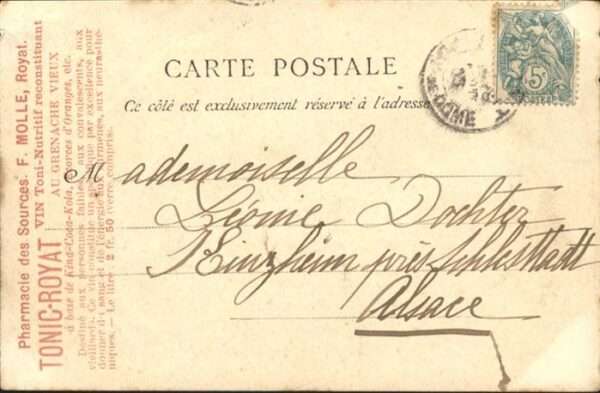 CARTE POSTALE
Ce côté est exclusivement réservé à l'adresse
Mademoiselle
Léonie Dochter
Kinzheim près Schlesttadt
Alsace
5c
DOME
Pharmacie des Sources. F. MOLLE, Royat.
TONIC-ROYAT VIN Toni-Nutritif reconstituant
AU GRENACHE VIEUX
à base de Kina-Coca-Kola, écorces d'Oranges, etc.
Destiné aux personnes faibles, aux convalescents, aux
vieillards. Ce vin constitue un spécifique par excellence pour
donner du sang et de l'énergie aux surmenés, aux neurasthé-
niques. — Le litre 2 fr. 50 verre compris.